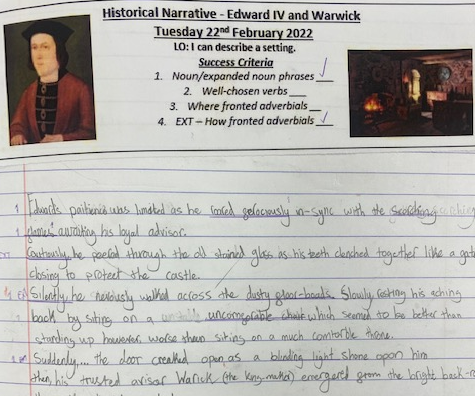 Historical Narrative - Edward IV and Warwick
Tuesday 22nd February 2022
LO: I can describe a setting.
Success Criteria
1. Noun/expanded noun phrases ___
2. Well-chosen verbs ___
3. Where fronted adverbials ___
4. EXT – How fronted adverbials ___
Edwards paitience was limited as he roared ferociously in-sync with the
flames awaiting his loyal advisor.
Coutiously, he peered through the old stained glass as his teeth clenched together like a gate
closing to protect the castle.
Silently, he nerviously walked across the dusty floor-boads. Slowly resting his aching
back by siting on a uncomforable chair which seemed to be better than
standing up however worse than siting on a much comforble throne.
Suddenly,... the door creaked open as a blinding light shone upon him
then, his trusted avisar Warick, (the king-maker) emergered from the bright